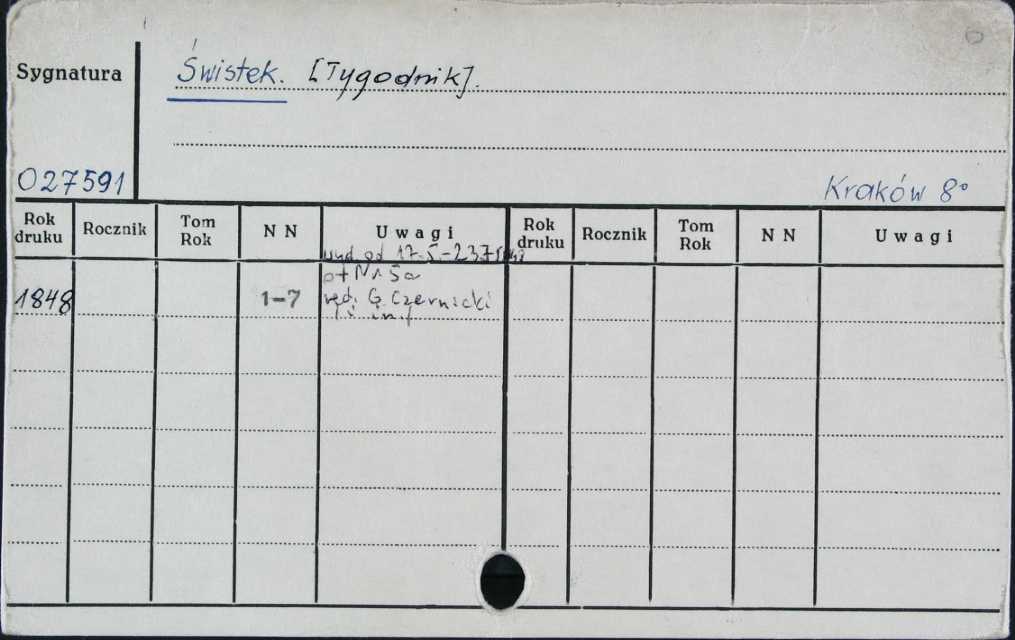 Sygnatura
Świstek. [Tygodnik].
027591
Kraków 8°
Rok druku Rocznik Tom Rok N N Uwagi Rok druku Rocznik Tom Rok N N Uwagi
wyd od 17.5-23.7 1848
Nr 5a
1848 1-7 red. G. Czernicki
i in.